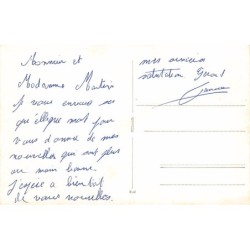 Monsieur et
Madame Martin
Je vous envoie ces
quelque mot pour
vous donner de mes
nouvelles qui sont plus
ou moin bonne.
J'espère a bientôt
de vous nouvelles.
mes sincères
salutation